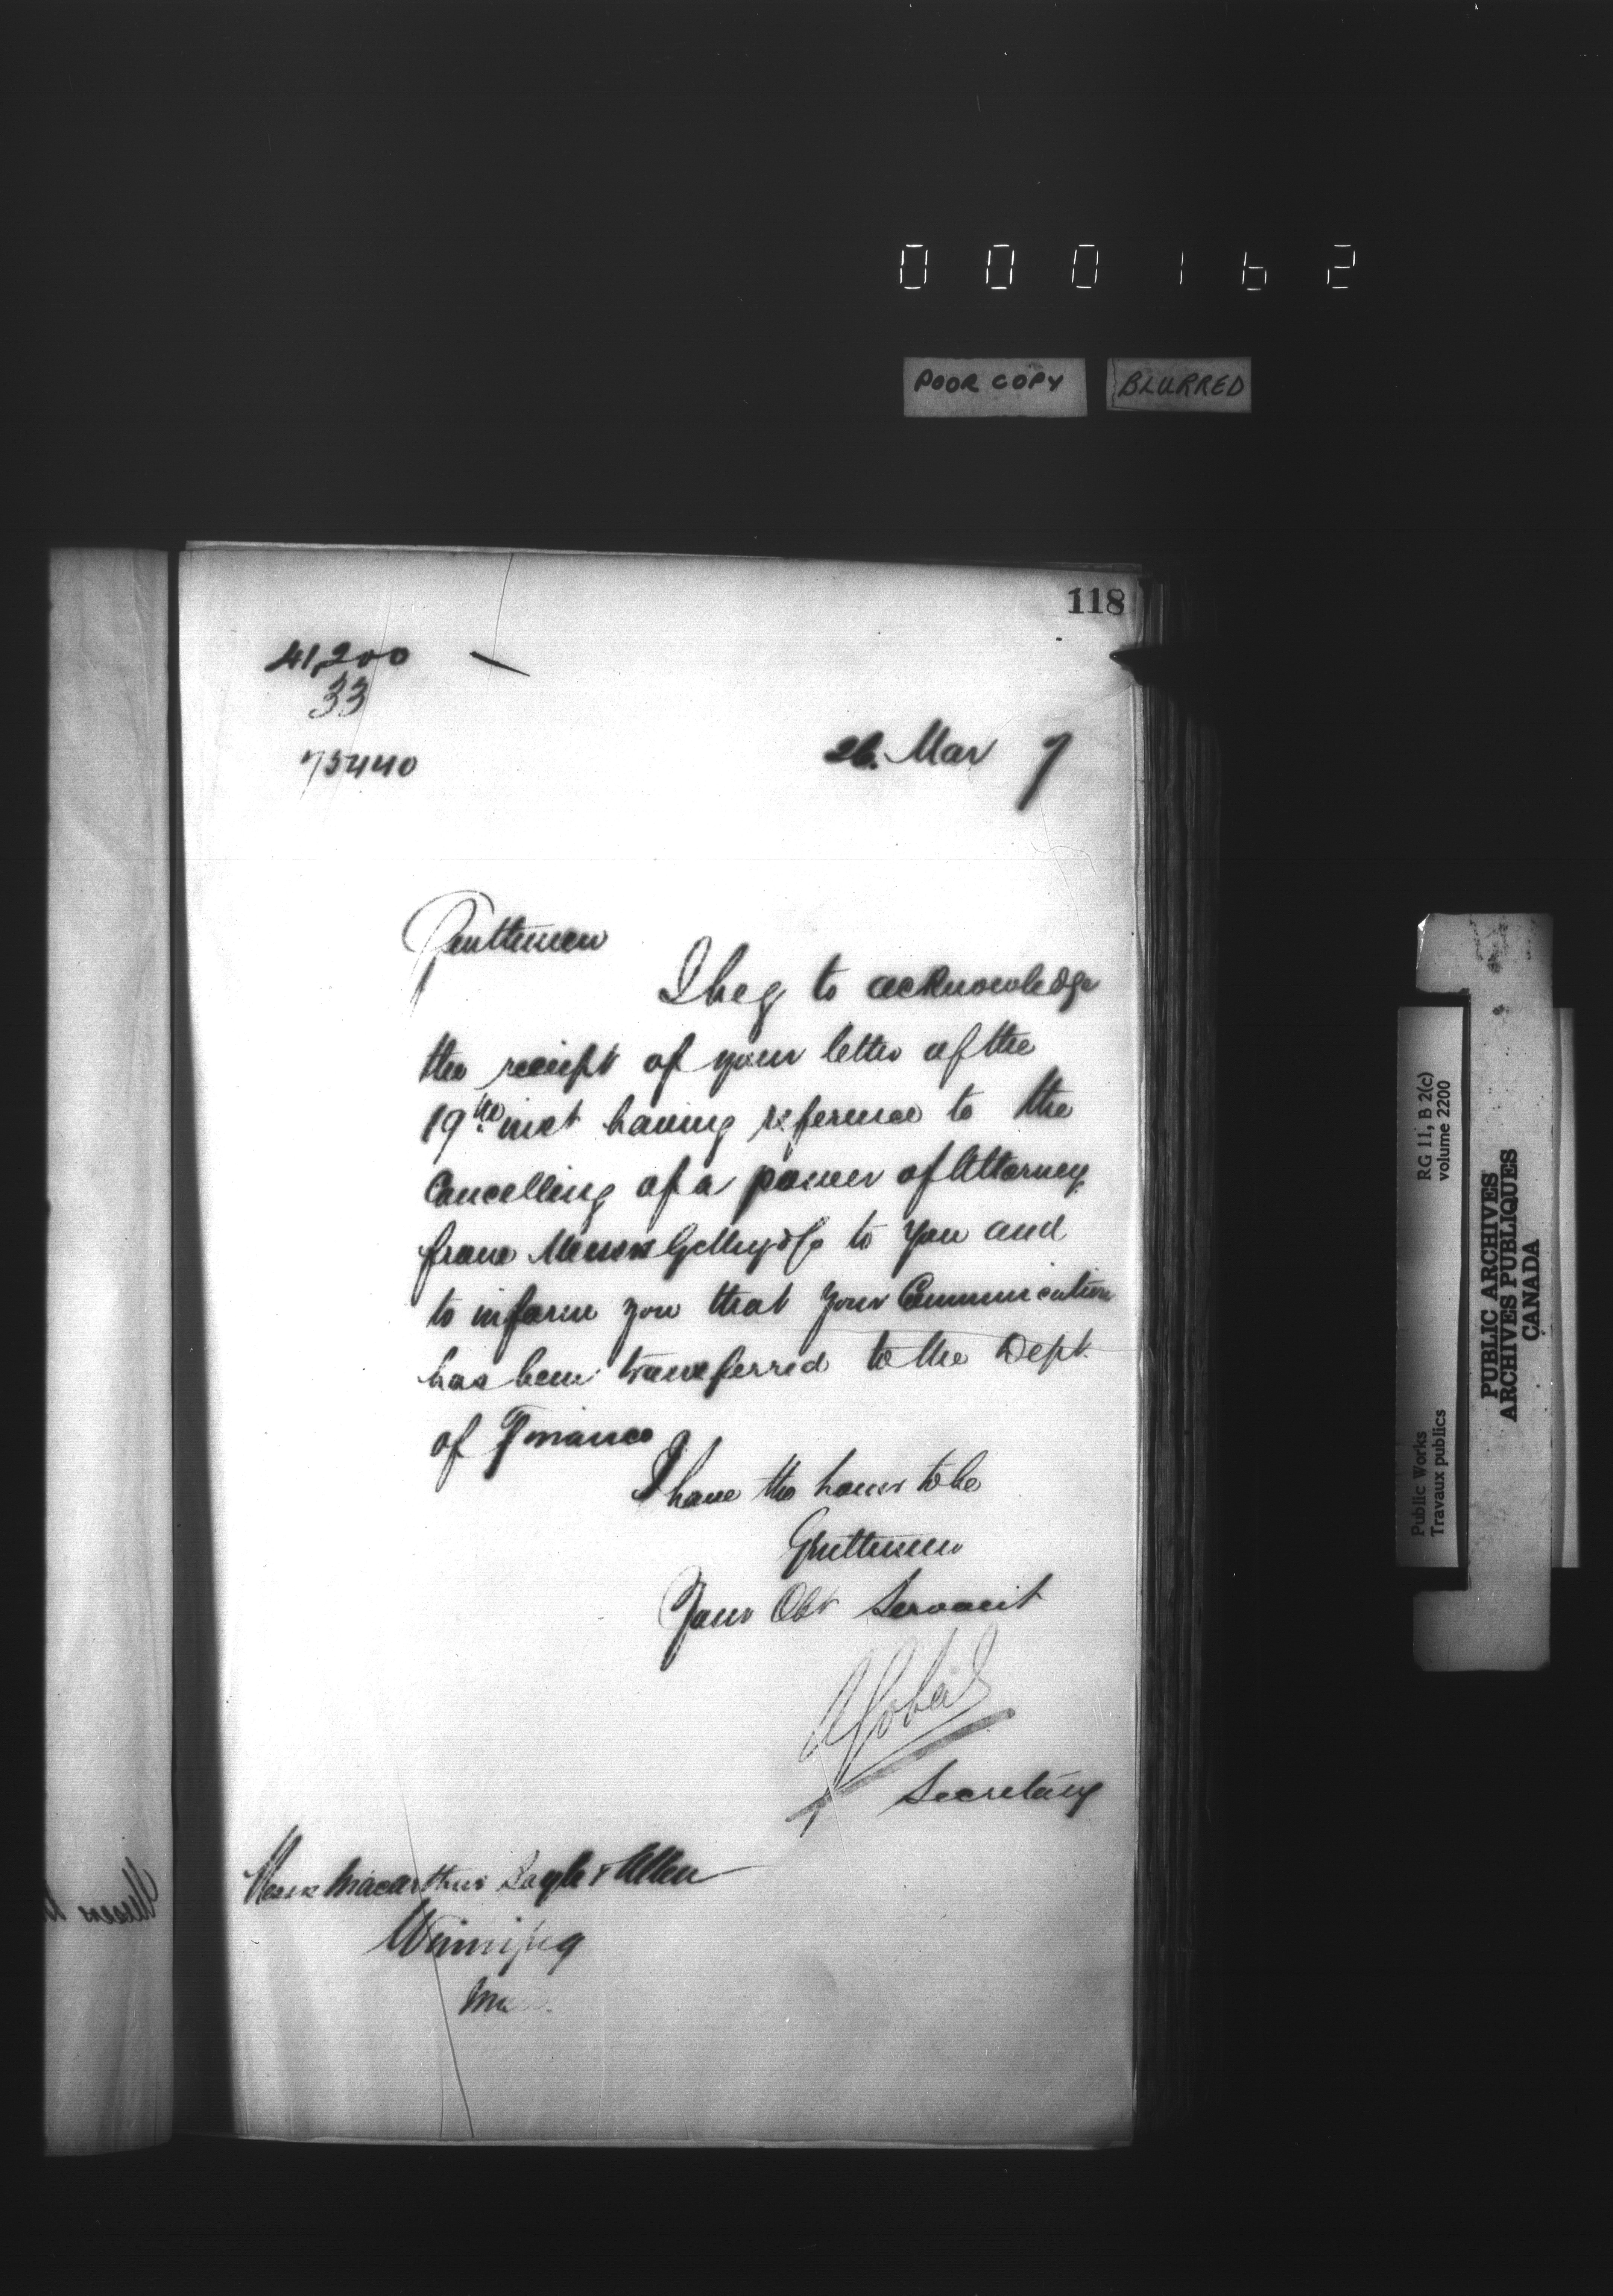 000162
POOR COPY BLURRED
118
41,200
33
75440
26. Mar 7
Gentlemen
I beg to acknowledge
the receipt of your letter of the
19th inst having reference to the
Cancelling of a power of Attorney
from Messrs to you and
to inform you that your Communication
has been transferred to the Dept.
of Finance
I have the honor to be
Gentlemen
Your Obt Servant
Secretary
Messrs Macarthur & Allen
Winnipeg
RG 11, B 2(c)
volume 2200
Public Works
Travaux publics
PUBLIC ARCHIVES
ARCHIVES PUBLIQUES
CANADA